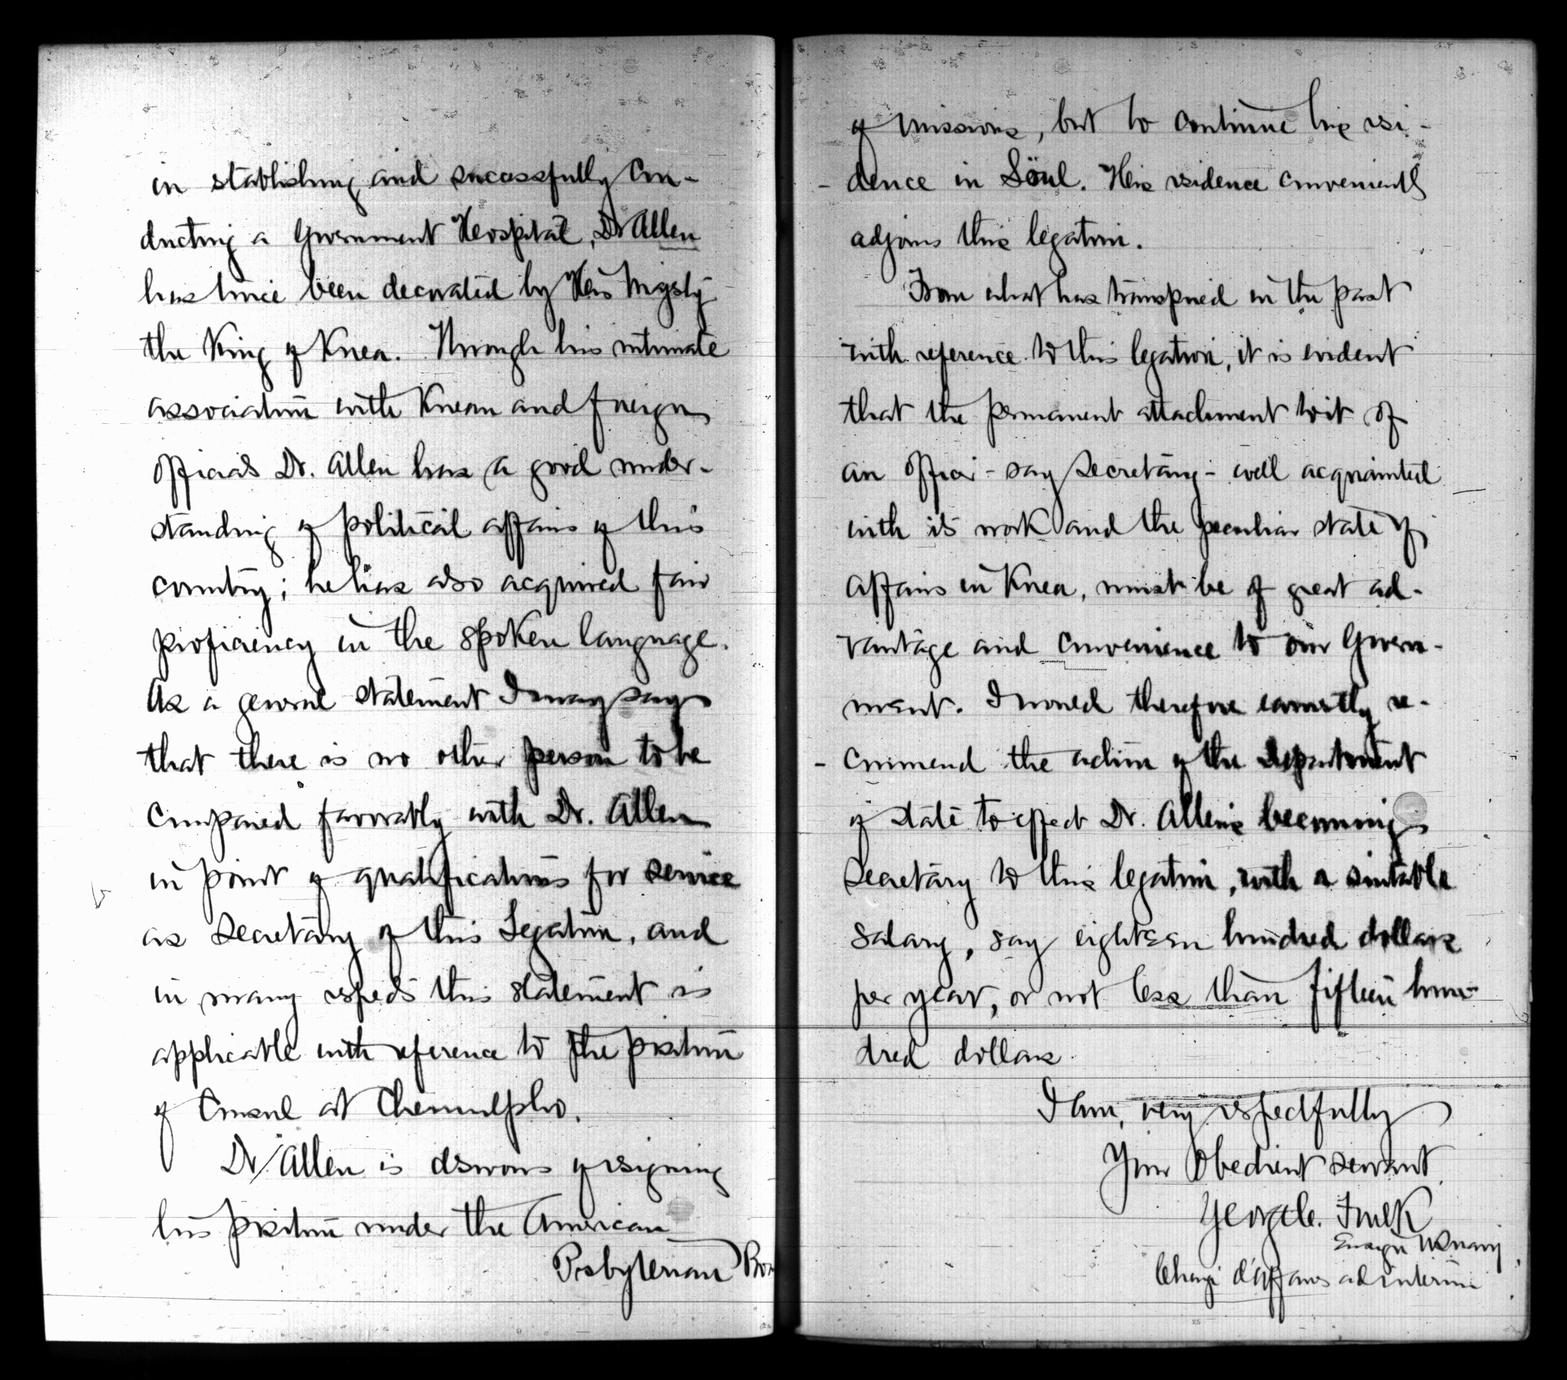 in establishing and sucessfully con-
ducting a Government Hospital, Dr Allen
has twice been decorated by His Majesty
the King of Korea. Through his intimate
association with Korean and foreign
officials Dr. Allen has a good under-
standing of political affairs of this
country; he has also acquired fair
proficiency in the spoken language.
As a general statement I may say
that there is no other person to be
compared favorably with Dr. Allen
in point of qualifications for service
as Secretary of this Legation, and
in many respects this statement is
applicable with reference to the position
of Consul at Chemulpho.
Dr Allen is desirous of resigning
his position under the American
Presbyterian
of missions, but to continue his resi-
- dence in Söul. His residence conveniently
adjoins this legation.
From what has transpired in the past
with reference to this legation, it is evident
that the permanent attachment to it of
an officer - say Secretary - well acquainted
with its work and the peculiar state of
affairs in Korea, must be of great ad-
vantage and convenience to our Govern-
ment. I would therefore earnestly re-
- commend the action of the Department
of State to effect Dr. Allen's becoming
Secretary to this legation, with a suitable
salary, say eighteen hundred dollars
per year, or not less than fifteen hun-
dred dollars.
I am, very respectfully
Your Obedient Servant
George C. Foulk
Ensign U.S. Navy
Chargé d'Affaires ad interim